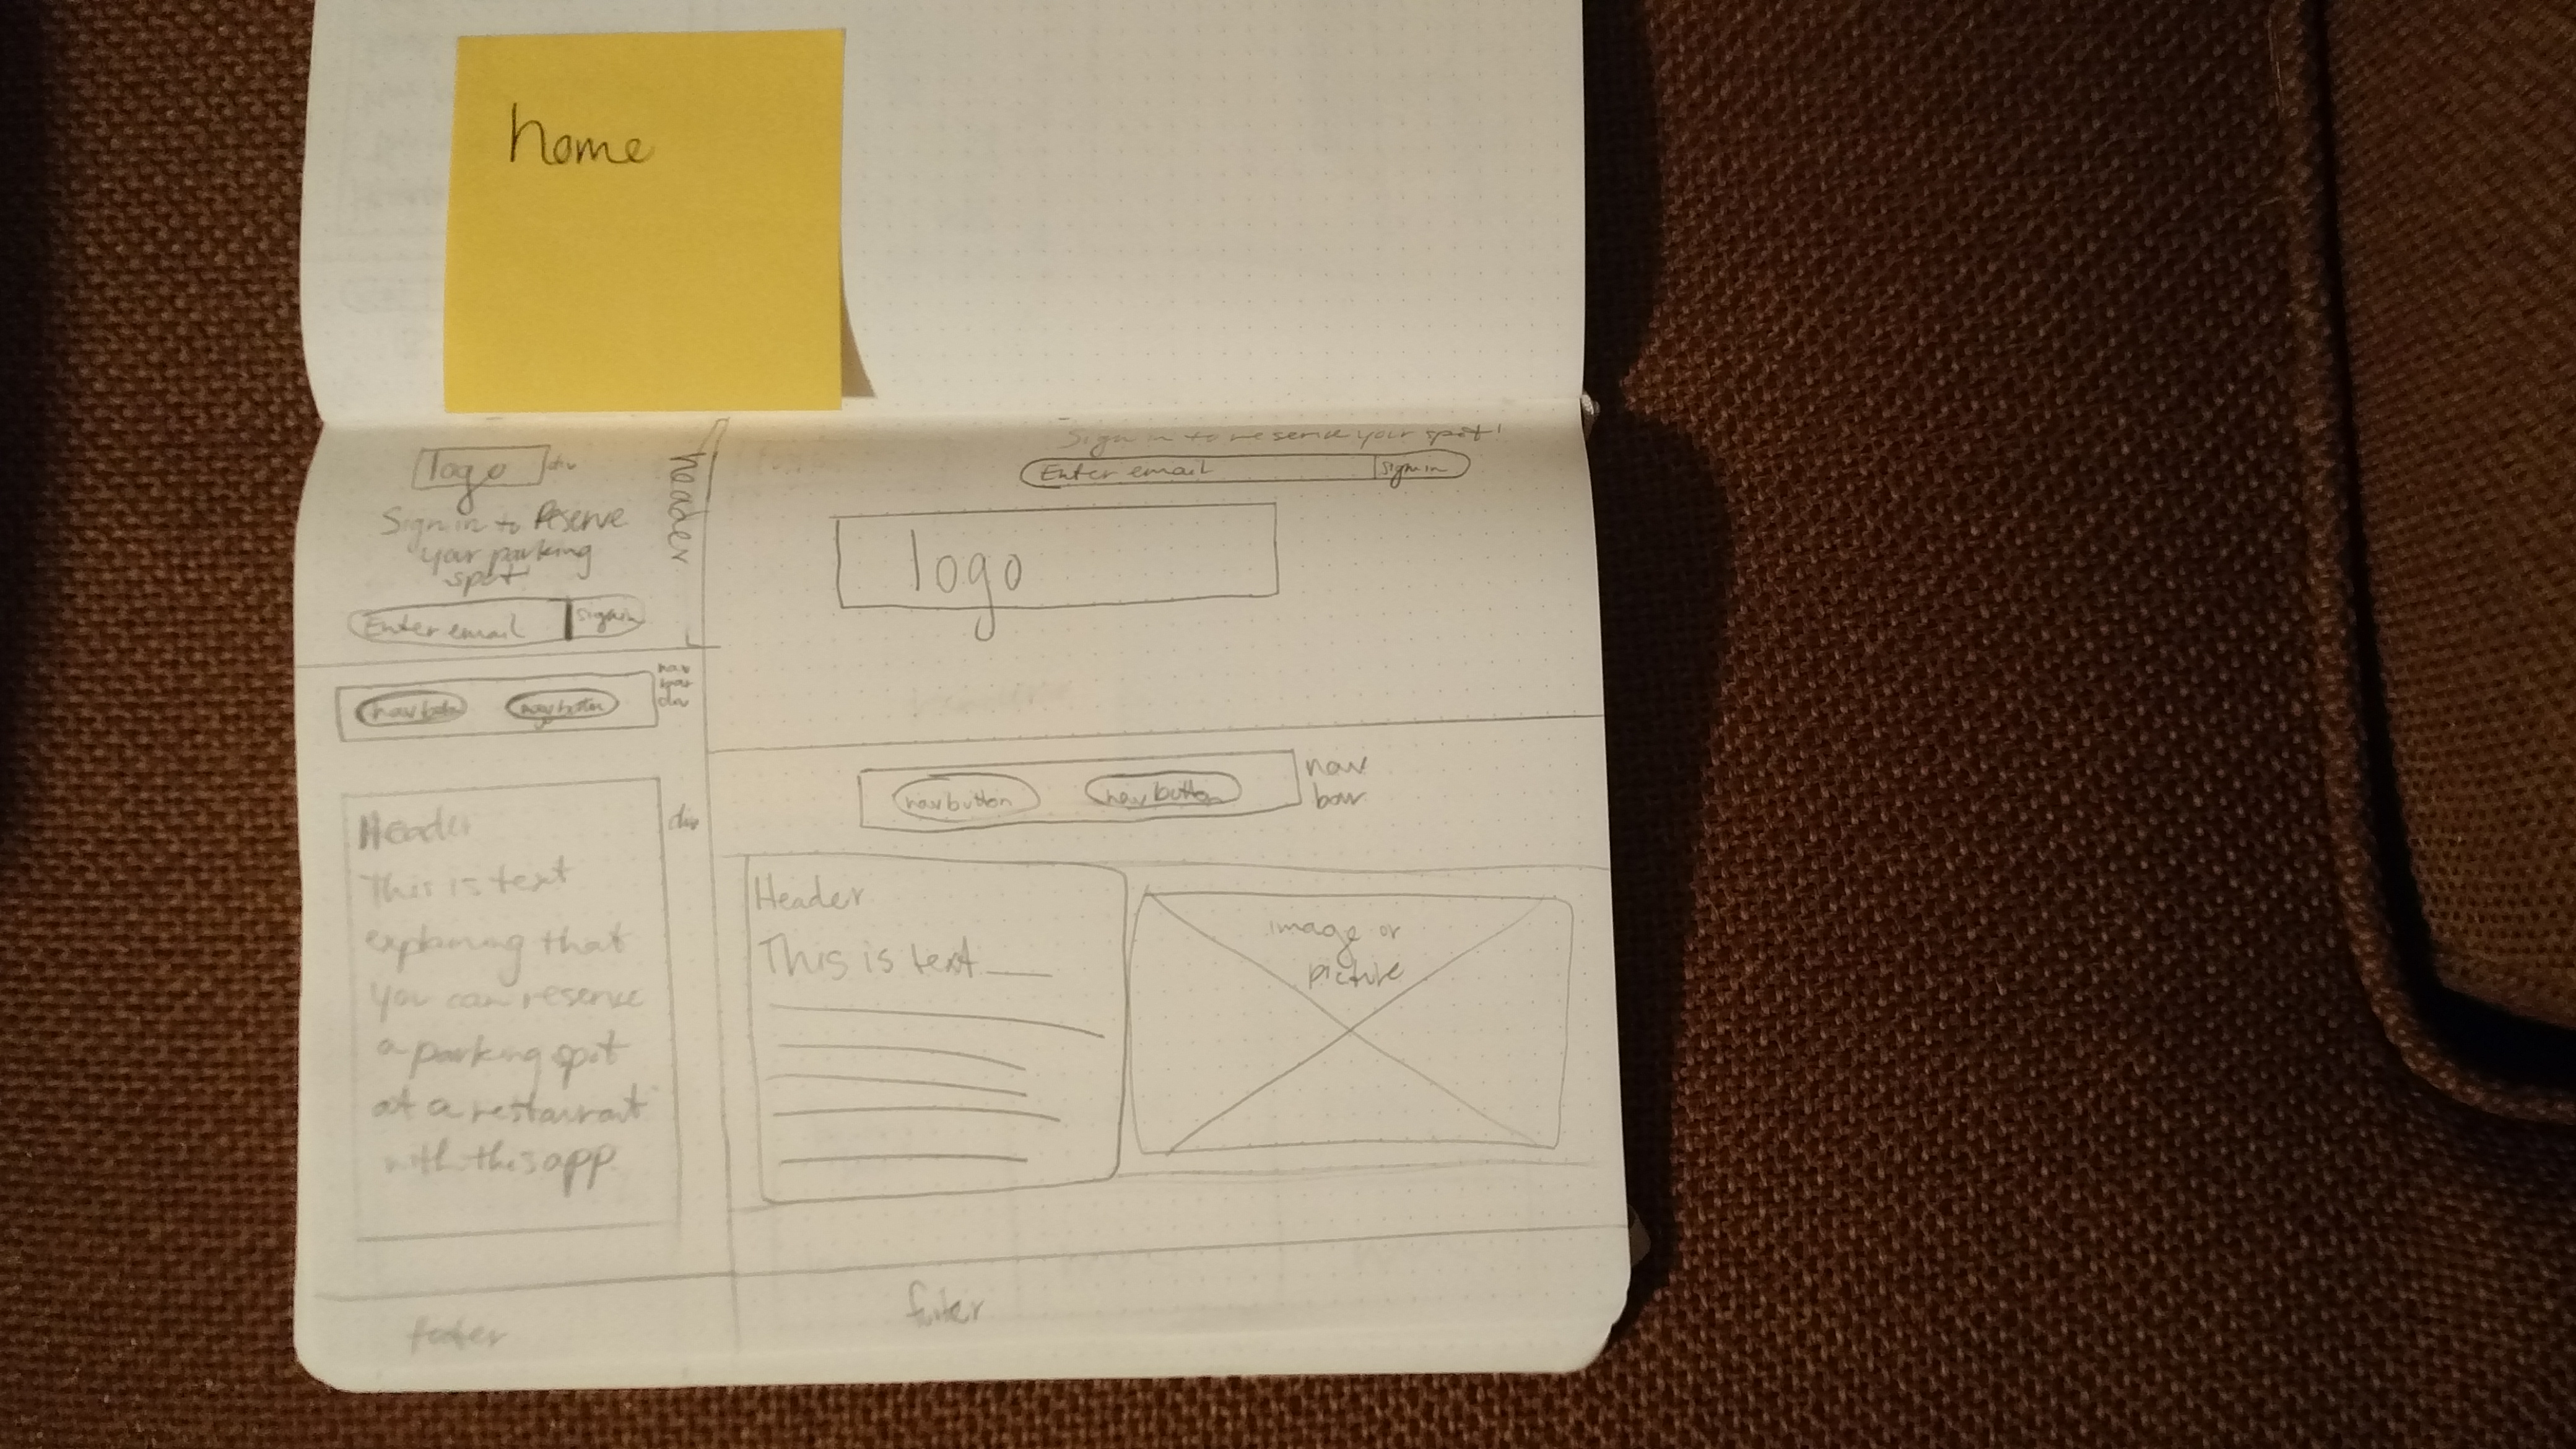 home
logo
div
Sign in to Reserve
your parking
spot
Enter email
sign in
header
nav
bar
div
nav button
nav button
Header
This is text
explaining that
you can reserve
a parking spot
at a restaurant
with this app
div
footer
Sign in to reserve your spot!
Enter email
sign in
logo
nav button
nav button
nav
bar
Header
This is text
image or
picture
footer